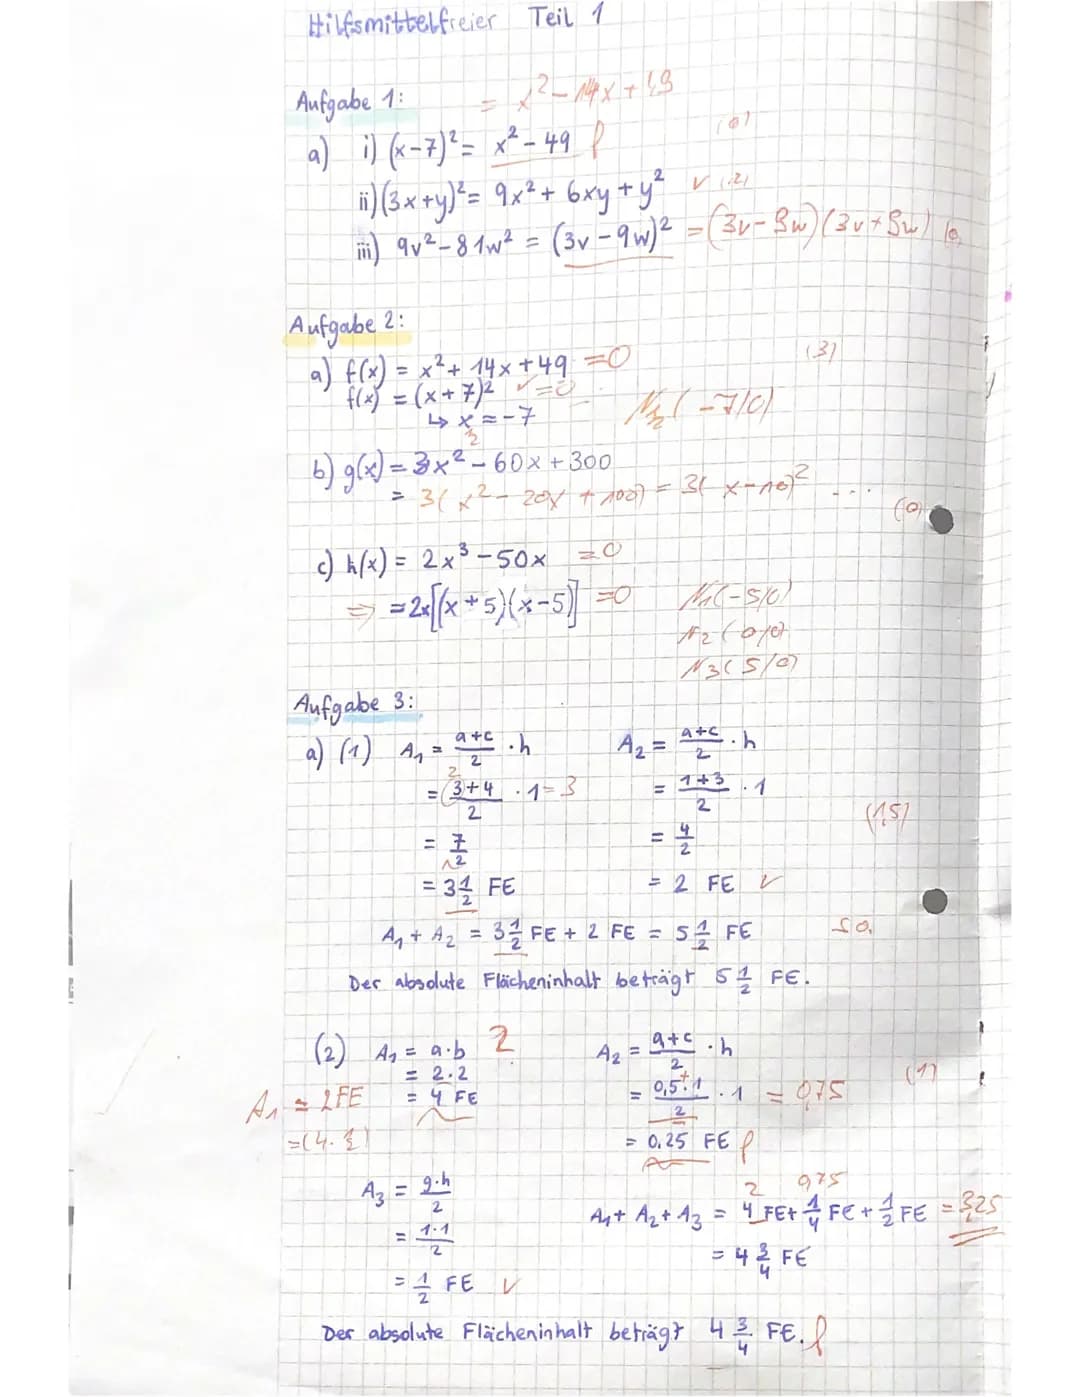 Hilfsmittelfreier Teil 1
Aufgabe 1: = x² - 14x + 49
a) i) (x-7)² = x² - 49 f (0)
ii) (3x+y)² = 9x² + 6xy + y² ✓ (2)
iii) 9v² - 81w² = (3v - 9w)² = (3v - 9w)(3v + 9w)
Aufgabe 2:
a) f(x) = x² + 14x + 49 = 0 (3)
f(x) = (x+7)² ✓ = 0
↳ x = -7 N₁₂(-7/0)
b) g(x) = 3x² - 60x + 300
= 3(x² - 20x + 100) = 3(x-10)² ... (0)
c) h(x) = 2x³ - 50x = 0
⇒ = 2x[(x+5)(x-5)] = 0 N1(-5/0)
N2(0/0)
N3(5/0)
Aufgabe 3:
a) (1) A₁ = a+c/2 · h A₂ = a+c/2 · h
2
= 3+4/2 · 1 = 3 = 1+3/2 · 1
= 7/2 = 4/2 (1,5)
= 3 1/2 FE = 2 FE ✓
A₁ + A₂ = 3 1/2 FE + 2 FE = 5 1/2 FE s.o.
Der absolute Flächeninhalt beträgt 5 1/2 FE.
(2) A₁ = a·b ? A₂ = a+c/2 · h
= 2·2 = 0,5+1/2 · 1 = 0,75 (1)
A₁ = 2FE = 4 FE
= (4 · 1/2) = 0.25 FE f
A₃ = g·h/2 2 0,75
= 1·1/2 A₁ + A₂ + A₃ = 4 FE + 1/4 FE + 1/2 FE = 3,25
= 4 3/4 FE
= 1/2 FE ✓
Der absolute Flächeninhalt beträgt 4 3/4 FE. f